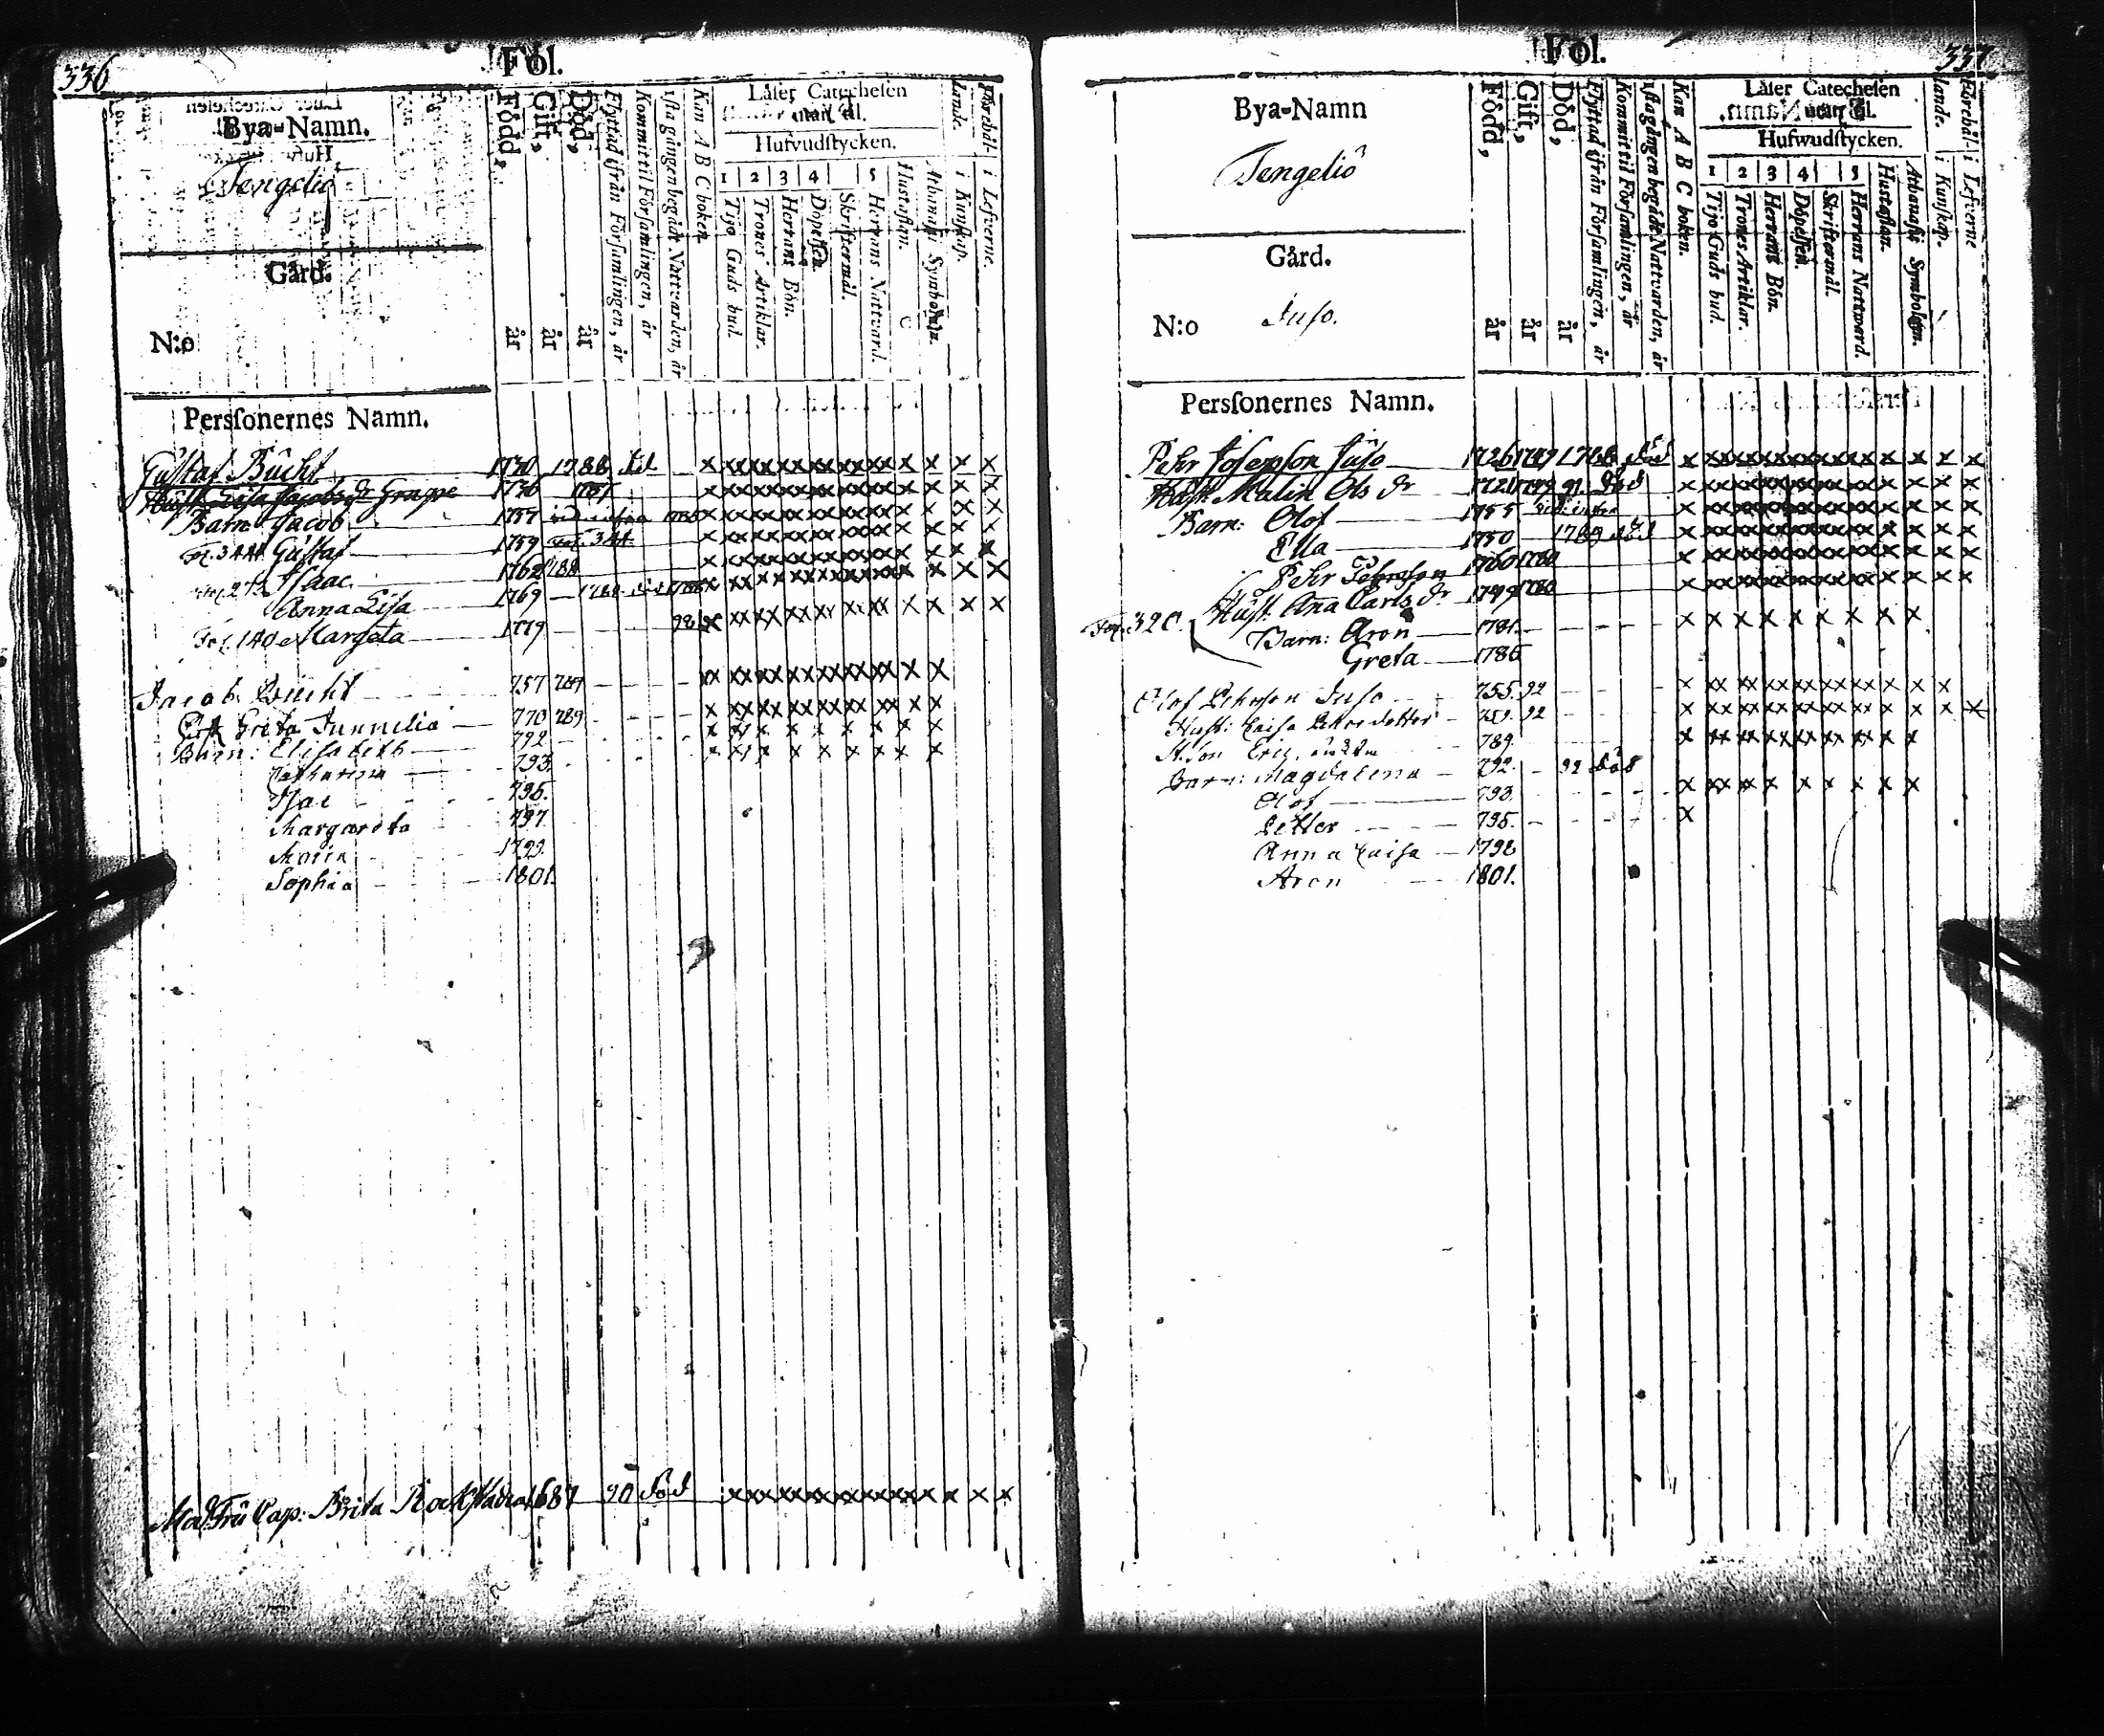 336
Föl.
Bya-Namn.
Tengeliö
Gård.
N:o
Född, år
Gift, år
Död, år
Flyttad ifrån Församlingen, år
Kommit til Församlingen, år
1sta gången begådt Nattvarden, år
Kan A B C boken.
Läser Catechesen utan til.
Hufvudstycken.
1 2 3 4 5
Tijo Guds bud.
Trones Artiklar.
Herrans Bön.
Döpelsen.
Skriftermål.
Herrans Nattvard.
Hustaflan.
Athanasii Symbolum.
Förebållande.
i Kunskap.
i Lefverne.
Persones Namn.
Gustaf Bucht 1730 1786 död
Hust. Lisa Jacobs dr Grape 1736 1787
Barn: Jacob 1757
Fol. 344 Gustaf 1759 Fol. 344
Isaac 1762 1788
Anna Lisa 1769
Fol. 140 Margeta 1779
Jacob Bucht 757 789
Greta Junnelia 770 789
Barn: Elisabeth 792
Catharina 793
Isac 795.
Margareta 797
Maria 1799.
Sophia 1801.
Cap: Brita 1687 90 död
Föl.
337
Bya-Namn
Tengeliö
Gård.
N:o Juso.
Född, år
Gift, år
Död, år
Flyttad ifrån Församlingen, år
Kommit til Församlingen, år
1sta gången begådt Nattvarden, år
Kan A B C boken.
Läser Catechesen utan til.
Hufwudstycken.
1 2 3 4 5
Tijo Guds bud.
Trones Artiklar.
Herrans Bön.
Döpelsen.
Skriftermål.
Herrans Nattward.
Hustaflan.
Athanasii Symbolum.
Förebållande.
i Kunskap.
i Lefverne
Persones Namn.
Pehr Josephson Juso 1726 1749 död
Hust. Malin Ols dr 1721 1749 91. död
Barn: Olof 1755
Ella 1750 1789 död
Pehr Pehrson 1760 1780
Fol. 320. Hust. Ana Carls dr 1749 1780
Barn: Aron 1781.
Greta 1786
Olof Pehrson Juso 755. 92
Hust: Caisa Pettersdotter 92
Eric 789.
Barn: Magdalena 792. 92 död
Olof 793.
Petter 795.
Anna Caisa 1798
Aron 1801.